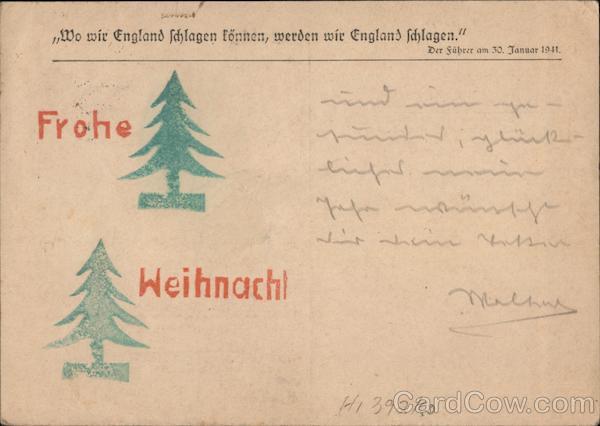 „Wo wir England schlagen können, werden wir England schlagen."
Der Führer am 30. Januar 1941.
Frohe
Weihnacht
und ein ge-
sundes, glück-
liches
Jahr wünscht
dir dein
Hi 39
CardCow.com